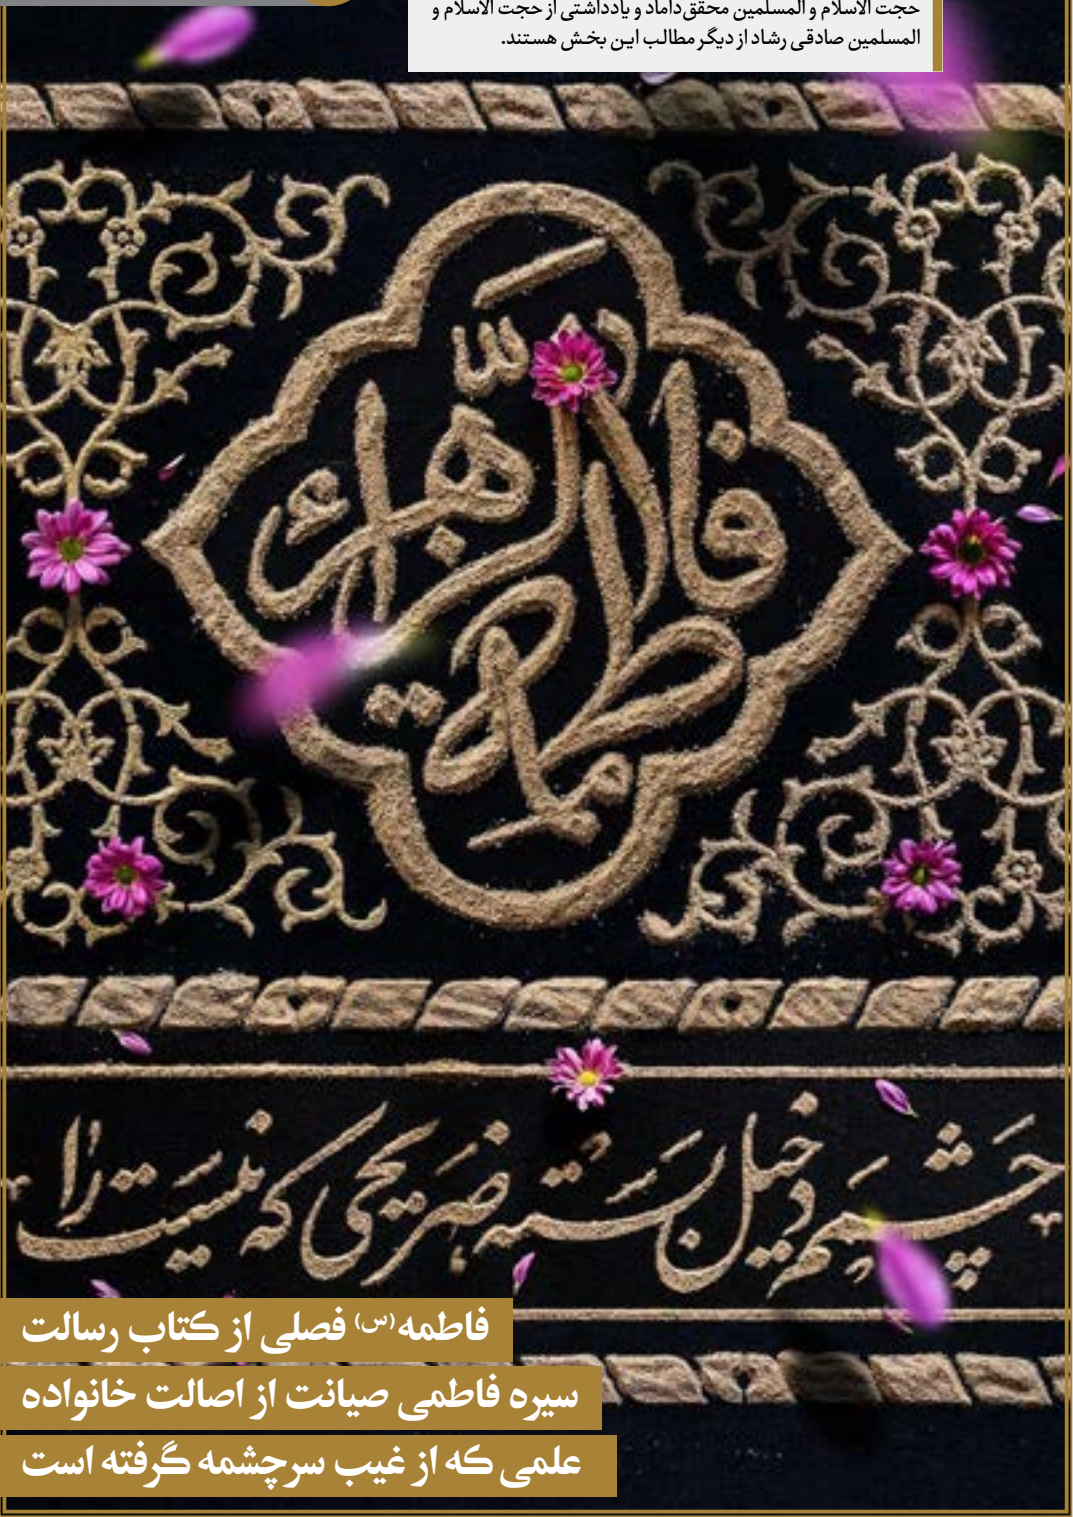 حجت الاسلام و المسلمین محقق‌داماد و یادداشتی از حجت الاسلام و
المسلمین صادقی رشاد از دیگر مطالب این بخش هستند.
فاطمة الزهراء
چشمم دخیل بسته ضریحی که نیست را
فاطمه(س) فصلی از کتاب رسالت
سیره فاطمی صیانت از اصالت خانواده
علمی که از غیب سرچشمه گرفته است